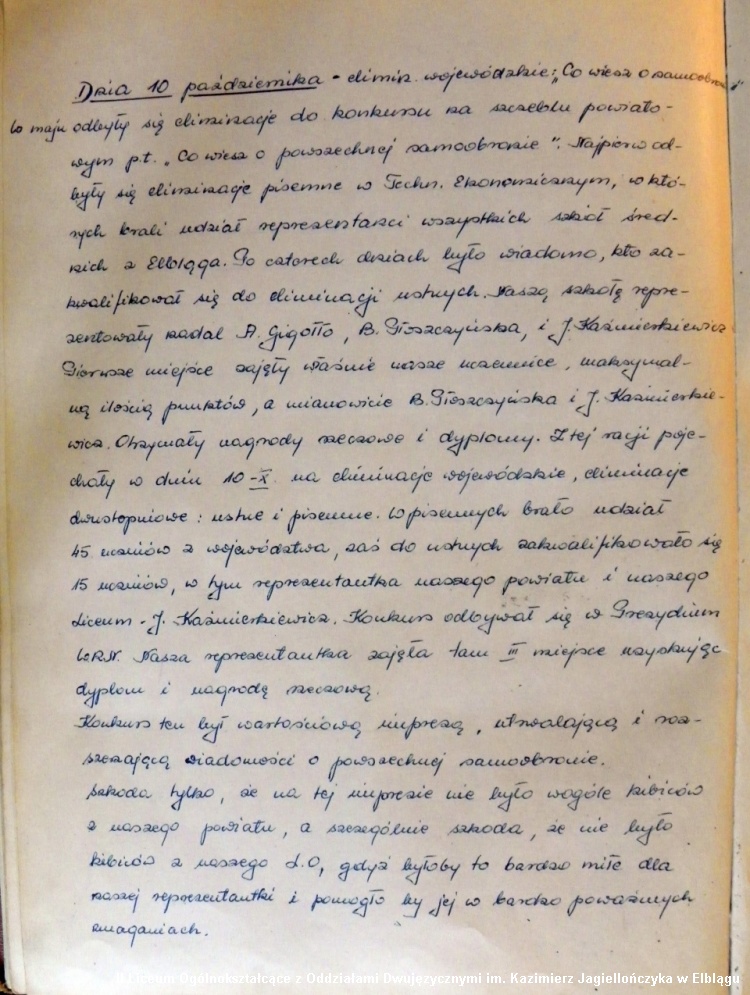 Dnia 10 października - elimin. wojewódzkie: „Co wiesz o samoobronie"
W maju odbyły się eliminacje do konkursu na szczeblu powiato-
wym p.t. „Co wiesz o powszechnej samoobronie". Najpierw od-
były się eliminacje pisemne w Techn. Ekonomicznym, w któ-
rych brali udział reprezentanci wszystkich szkół śred-
nich z Elbląga. Po czterech dniach było wiadomo, kto za-
kwalifikował się do eliminacji ustnych. Naszą szkołę repre-
zentowały nadal A. Gigołło, B. Płoszczyńska, i J. Kaźmierkiewicz
Pierwsze miejsce zajęły właśnie nasze uczennice, maksymal-
ną ilością punktów, a mianowicie B. Płoszczyńska i J. Kaźmierkie-
wicz. Otrzymały nagrody rzeczowe i dyplomy. Z tej racji poje-
chały w dniu 10-X na eliminacje wojewódzkie, eliminacje
dwustopniowe: ustne i pisemne. W pisemnych brało udział
45 uczniów z województwa, zaś do ustnych zakwalifikowało się
15 uczniów, w tym reprezentantka naszego powiatu i naszego
Liceum - J. Kaźmierkiewicz. Konkurs odbywał się w Prezydium
W.R.N. Nasza reprezentantka zajęła tam III miejsce uzyskując
dyplom i nagrodę rzeczową.
Konkurs ten był wartościową imprezą, utrwalającą i roz-
szerzającą wiadomości o powszechnej samoobronie.
Szkoda tylko, że na tej imprezie nie było wogóle kibiców
z naszego powiatu, a szczególnie szkoda, że nie było
kibiców z naszego L.O, gdyż byłoby to bardzo miłe dla
naszej reprezentantki i pomogło by jej w bardzo poważnych
zmaganiach.
Liceum Ogólnokształcące z Oddziałami Dwujęzycznymi im. Kazimierz Jagiellończyka w Elblągu